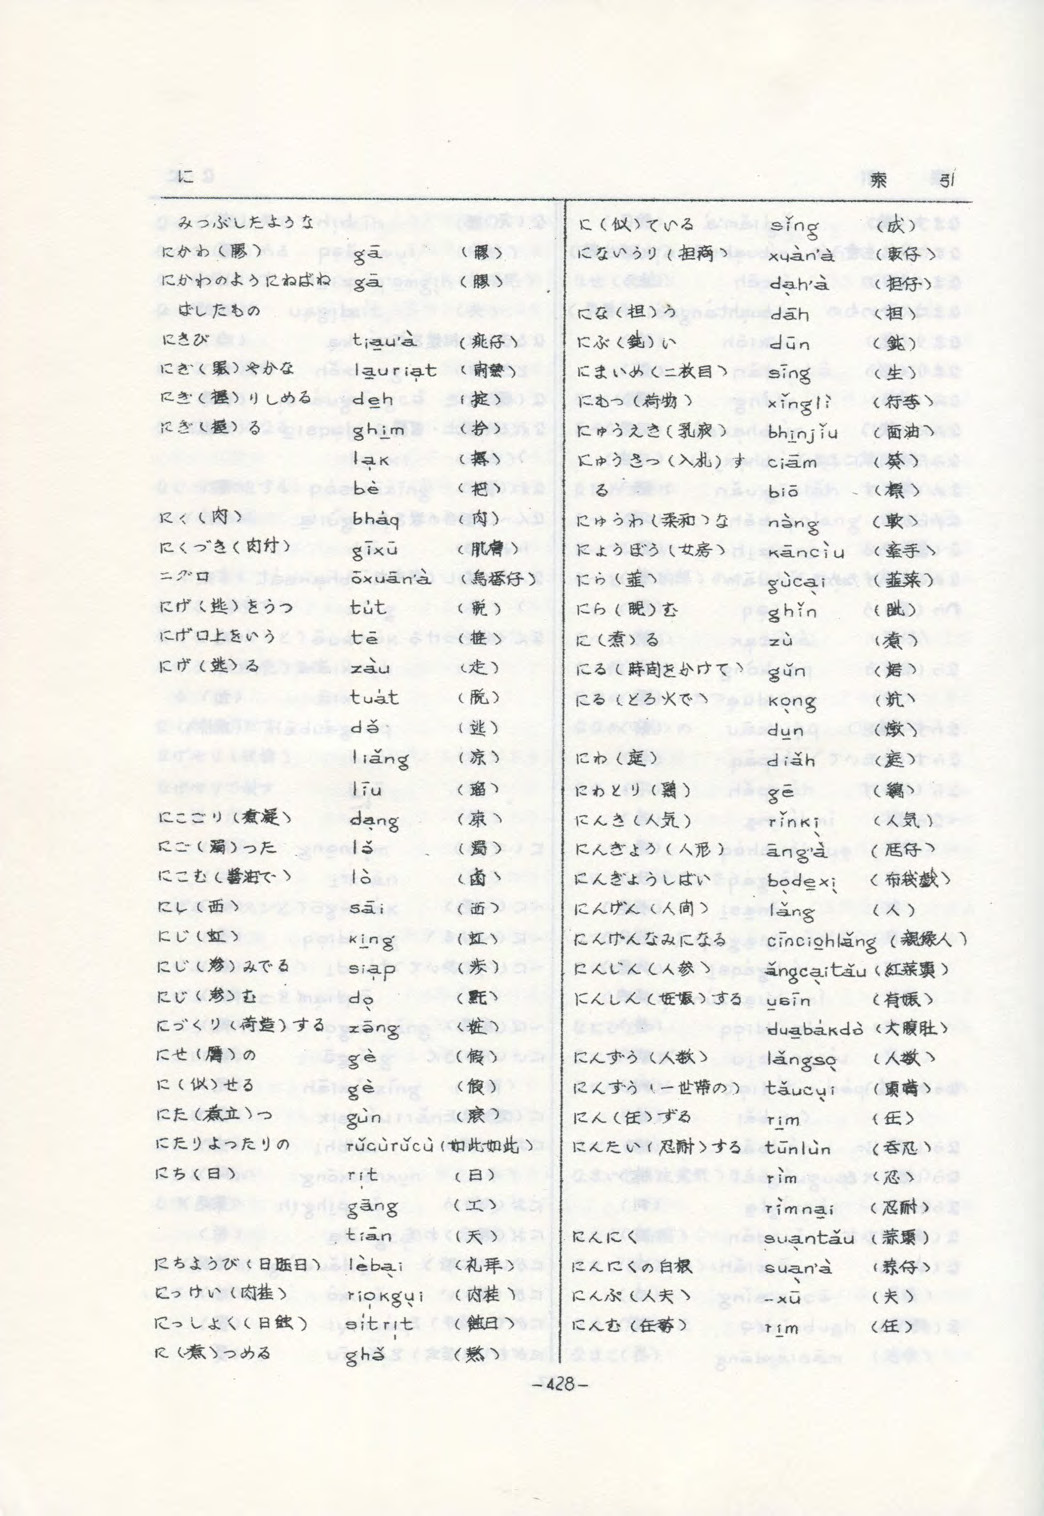 に
索 引
みつぶしたような
にかわ(膠) gā (膠)
にかわのようにねばね gā (膠)
ばしたもの
にきび tia̱u'à (疵仔)
にぎ(賑)やかな la̱uria̍t (鬧熱)
にぎ(握)りしめる de̱h (掟)
にぎ(握)る ghi̱m (扲)
la̍k (搦)
bè (把)
にく(肉) bha̍q (肉)
にくづき(肉付) gīxū (肌膚)
ニグロ ōxuān'à (烏番仔)
にげ(逃)をうつ tu̍t
にげ口上をいう tē
にげ(逃)る zàu (走)
tua̍t (脱)
dǒ (逃)
liǎng (凉)
līu (溜)
にこごり(煮凝) da̱ng (凍)
にご(濁)った lǒ (濁)
にこむ(醤油で) lò (鹵)
にし(西) sāi (西)
にじ(虹) ki̱ng (虹)
にじ(滲)みでる sia̍p
にじ(滲)む do̱
にづくり(荷造)する zāng (粧)
にせ(贋)の gè (假)
に(似)せる gè (假)
にた(煮立)つ gùn (滾)
にたりよったりの rǔcùrǔcù (如此如此)
にち(日) ri̍t (日)
gāng (工)
tiān (天)
にちようび(日曜日) lèba̱i (礼拝)
にっけい(肉桂) rio̍kgu̱i (肉桂)
にっしょく(日蝕) si̍tri̍t (蝕日)
に(煮)つめる ghǒ (熬)
に(似)ている sǐng (成)
にないうり(担商) xuàn'à (販仔)
da̱h'à (担仔)
にな(担)う dāh (担)
にぶ(鈍)い dūn (鈍)
にまいめ(二枚目) sīng (生)
にもつ(荷物) xǐnglì (行李)
にゅうえき(乳液) bhi̱njǐu (面油)
にゅうさつ(入札)す ciām
る biō (標)
にゅうわ(柔和)な nàng (軟)
にょうぼう(女房) kāncìu (牽手)
にら(韮) gùca̱i (韮菜)
にら(睨)む ghǐn
に(煮)る zù (煮)
にる(時間をかけて) gǔn
にる(とろ火で) ko̱ng
du̱n (燉)
にわ(庭) diǎh (庭)
にわとり(鶏) gē (鶏)
にんき(人気) rǐnki̱ (人気)
にんぎょう(人形) āng'à (尪仔)
にんぎょうしばい bo̱de̱xi̱ (布袋戯)
にんげん(人間) lǎng (人)
にんげんなみになる cīncio̱hlǎng (親像人)
にんじん(人参) ǎngca̱itǎu (紅菜頭)
にんしん(妊娠)する u̱sīn (有娠)
dua̱bákdò (大腹肚)
にんずう(人数) lǎngso̱ (人数)
にんずう(一世帯の) tǎucu̱i (頭嘴)
にん(任)ずる ri̱m (任)
にんたい(忍耐)する tūnlùn (呑忍)
rìm (忍)
rìmna̱i (忍耐)
にんにく su̱antǎu (蒜頭)
にんにくの白根 sua̱n'à (蒜仔)
にんぷ(人夫) –xū (夫)
にんむ(任務) ri̱m (任)
–428–